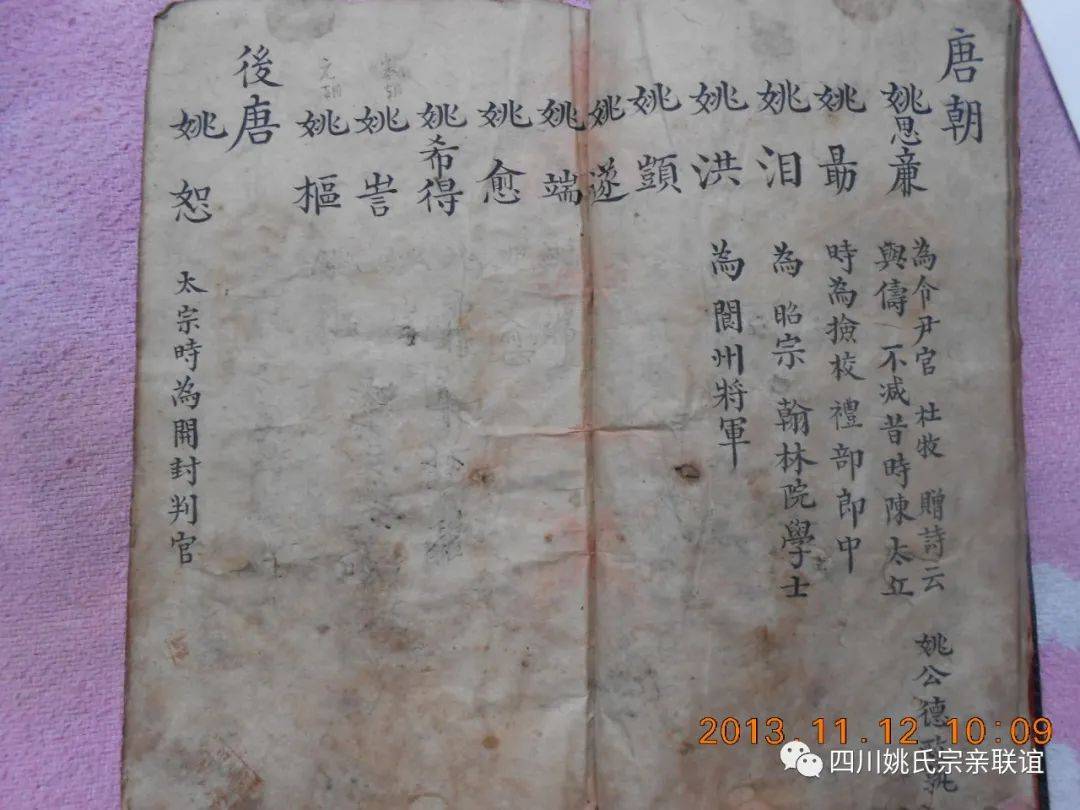 唐朝
姚思廉
為令尹官 杜牧 贈詩云 姚公德
與儔 不減昔時陳太丘
姚最
時為撿校禮部郎中
姚洎
為昭宗翰林院學士
姚洪
為閬州將軍
姚顗
姚遂
姚端
姚愈
姚希得
姚訔
姚樞
元朝
後唐
姚恕
太宗時為開封判官
2013.11.12 10:09
四川姚氏宗亲联谊